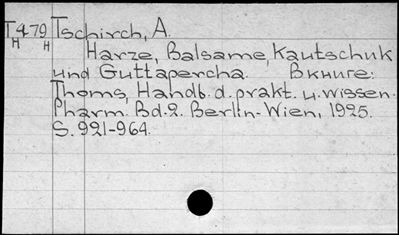 T479 Tschirch, A.
H H Harze, Balsame, Kautschuk
und Guttapercha. Вкниге:
Thoms, Handb. d. prakt. u. wissen.
Pharm. Bd. 2. Berlin-Wien, 1925.
S. 921-964.